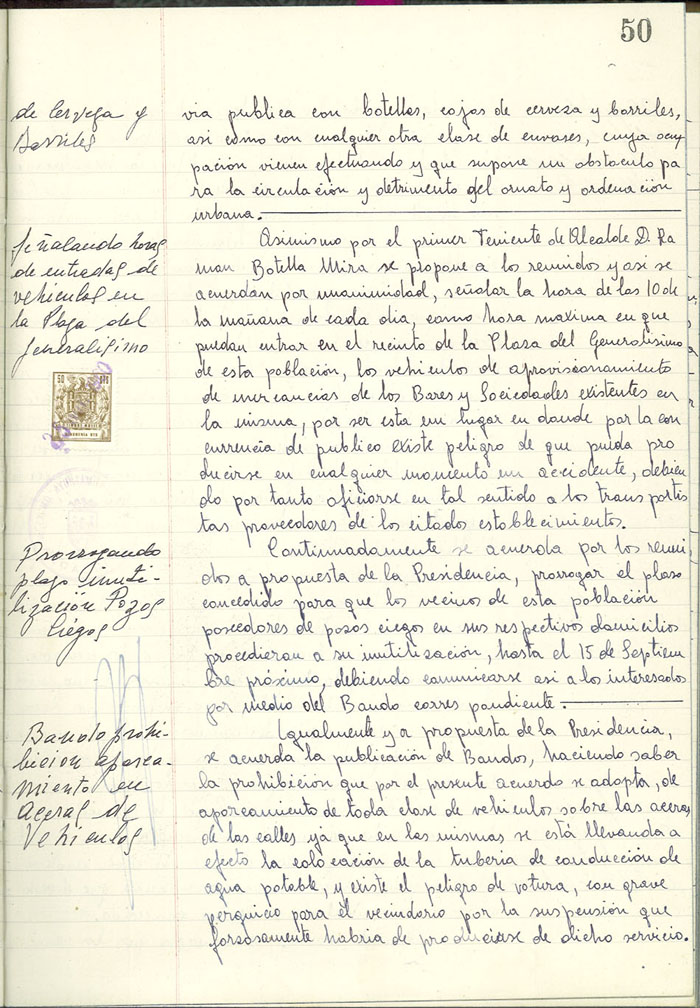 50
de Cerveza y
Barriles
via publica con botellas, cajas de cerveza y barriles,
asi como con cualquier otra clase de envases, cuya ocu
pación vienen efectuando y que supone un obstaculo pa
ra la circulación y detrimento del ornato y ordenación
urbana.
Señalando horas
de entradas de
vehiculos en
la Plaza del
Generalisimo
Asimismo por el primer Teniente de Alcalde D. Ra
mon Botella Mira se propone a los reunidos y asi se
acuerdan por unanimidad, señalar la hora de las 10 de
la mañana de cada dia, como hora maxima en que
puedan entrar en el recinto de la Plaza del Generalisimo
de esta población, los vehiculos de aprovisionamiento
de mercancias de los Bares y Sociedades existentes en
la misma, por ser esta un lugar en donde por la con
currencia de publico existe peligro de que pueda pro
ducirse en cualquier momento un accidente, debien
do por tanto oficiarse en tal sentido a los transportis
tas proveedores de los citados establecimientos.
50 PTS
Prorrogando
plazo inuti-
lización Pozos
Ciegos
Continuadamente se acuerda por los reuni
dos a propuesta de la Presidencia, prorrogar el plaso
concedido para que los vecinos de esta población
poseedores de posos ciegos en sus respectivos domicilios
procedieran a su inutilización, hasta el 15 de Septiem
bre próximo, debiendo comunicarse asi a los interesados
por medio del Bando correspondiente.
Bando prohi-
bicion aparca-
miento en
aceras de
Vehiculos
Igualmente y a propuesta de la Presidencia,
se acuerda la publicación de Bandos, haciendo saber
la prohibición que por el presente acuerdo se adopta, de
aparcamiento de toda clase de vehiculos sobre las aceras
de las calles ya que en las mismas se está llevando a
efecto la colocación de la tuberia de conducción de
agua potable, y existe el peligro de rotura, con grave
perjuico para el vecindario por la suspensión que
forsosamente habria de producirse de dicho servicio.